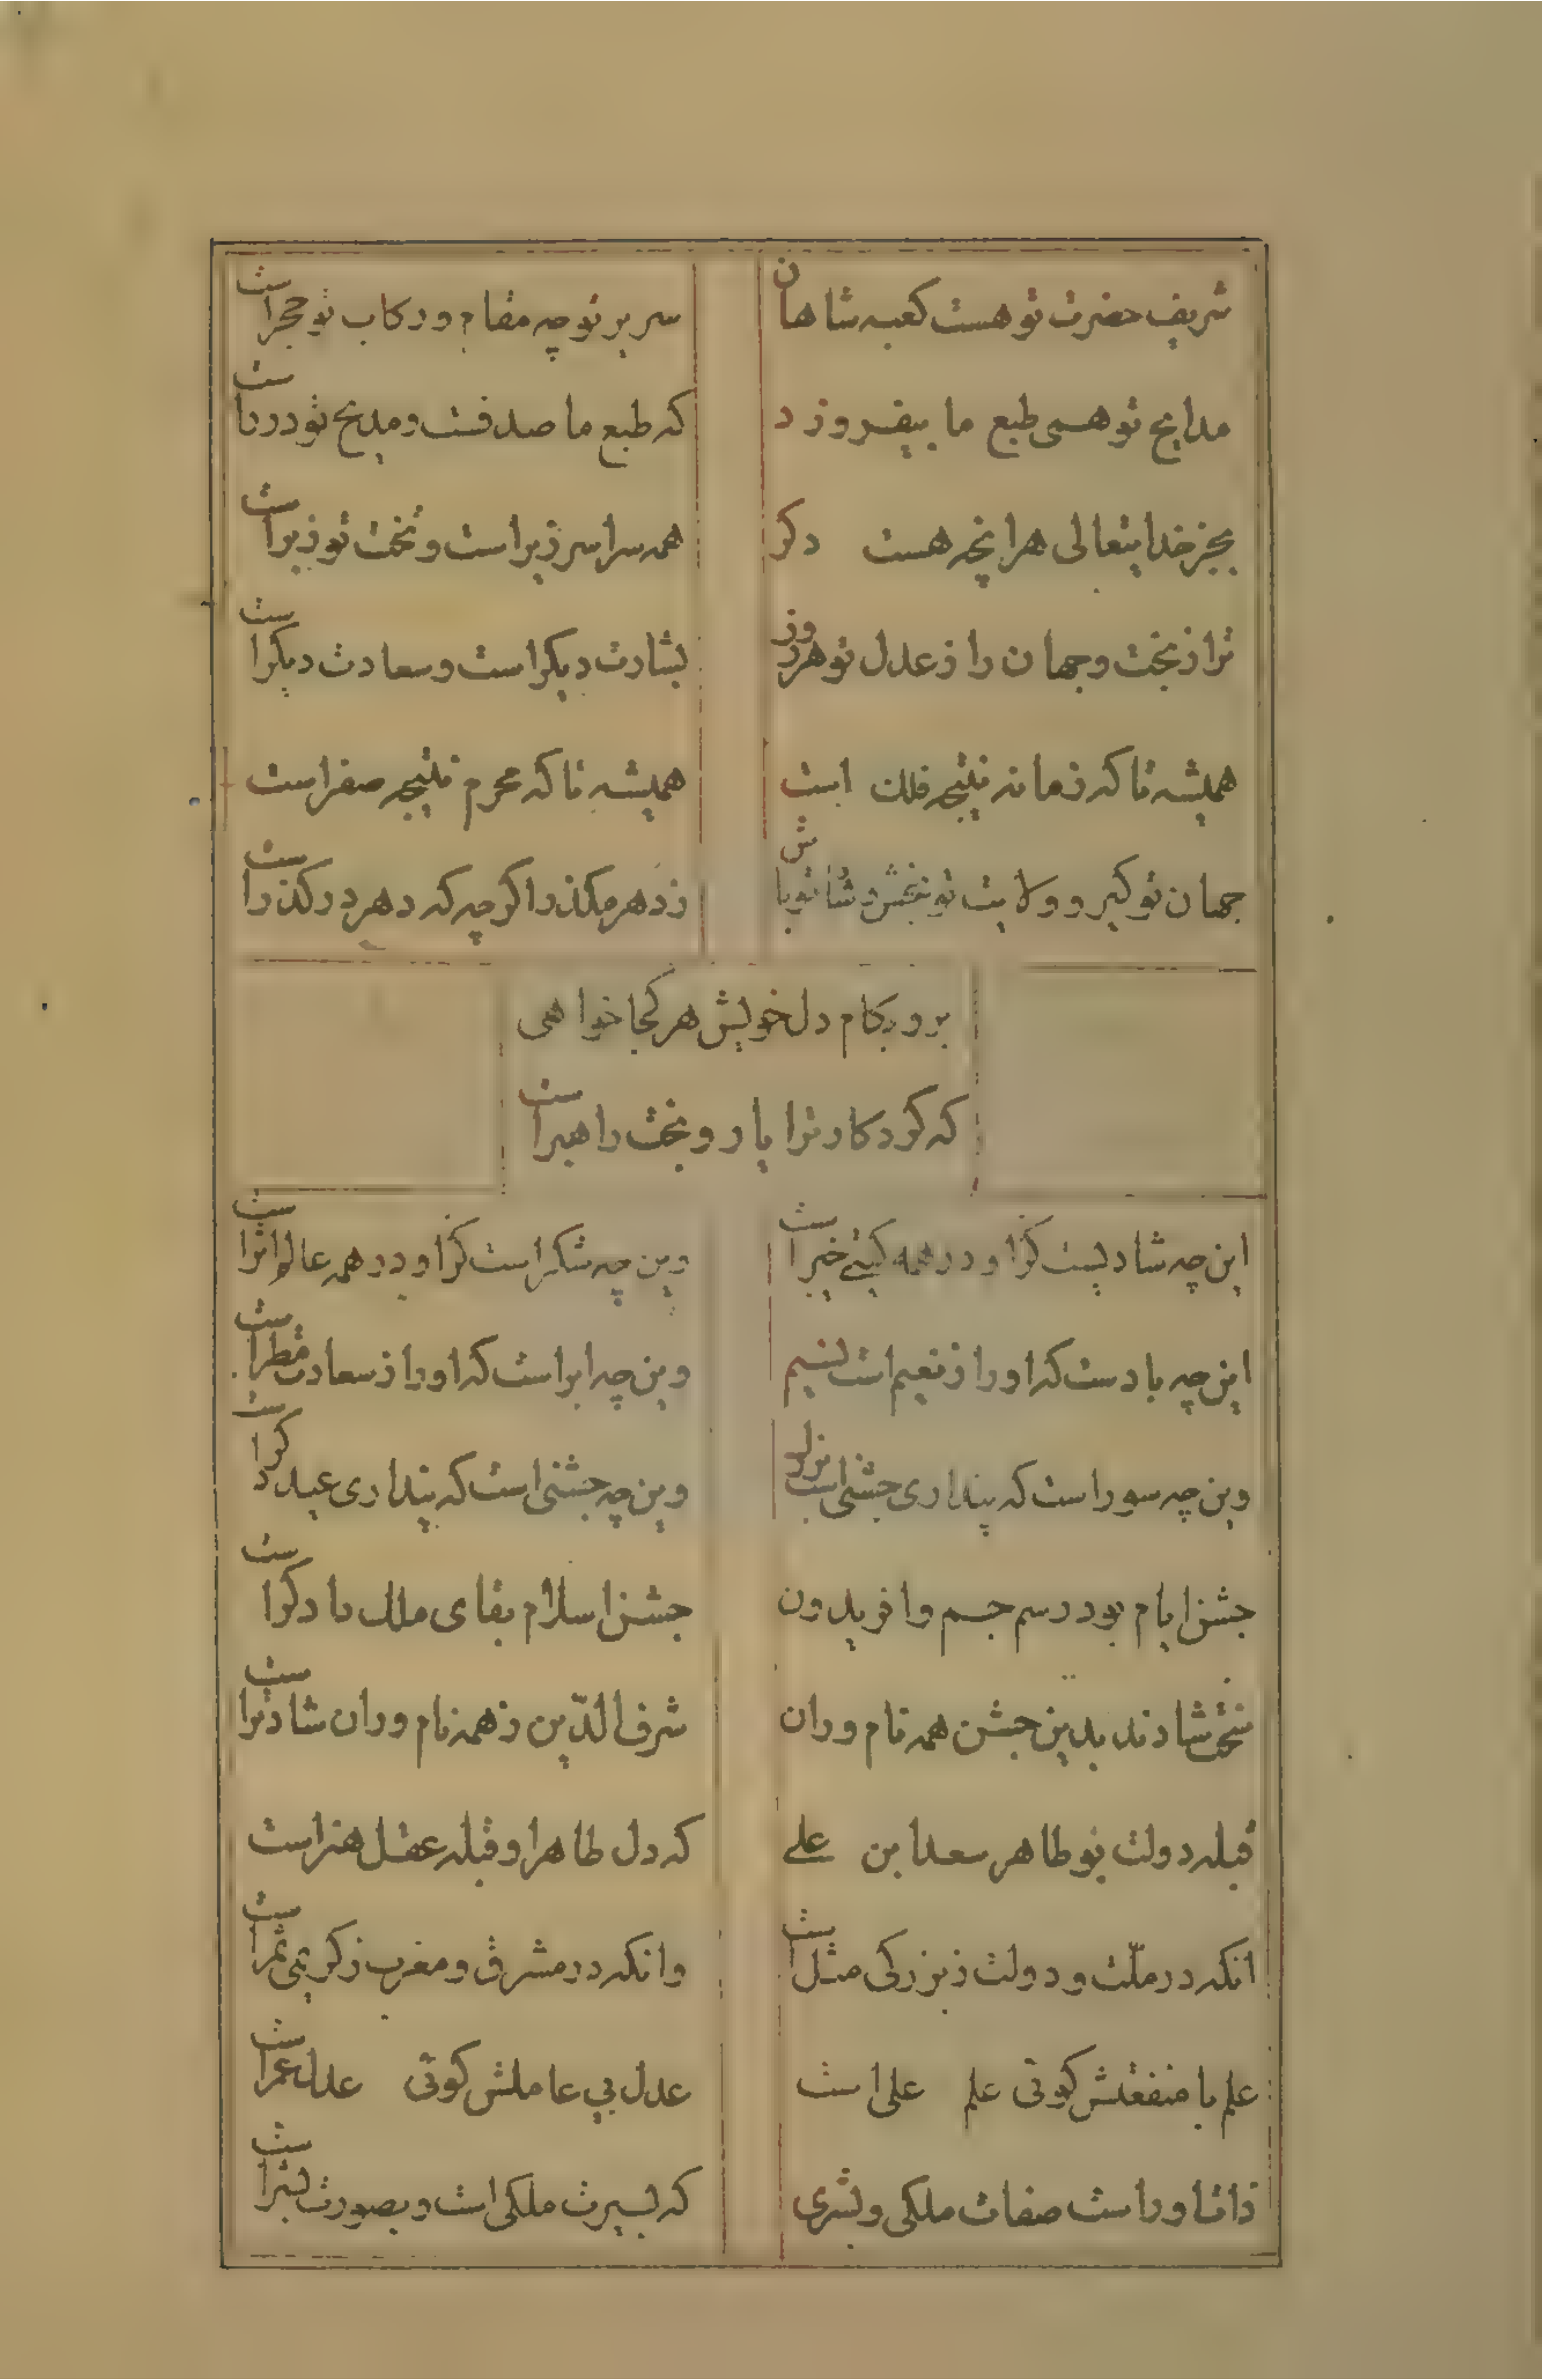 شریف حضرت تو هست کعبه شاهان
سریر تو چه مقام و رکاب تو حجراست
مدایح تو همی طبع ما بیفروزد
که طبع ما صدفست و مدیح تو درراست
بجز خدایتعالی هرانچه هست دکر
همه سراسر زیراست و تخت تو زبراست
ترا ز بخت و جهان را ز عدل تو هر روز
بشارت دیکراست و سعادت دیکراست
همیشه تا که زمانه نتیجه فلک است
همیشه تا که محرم نتیجه صفراست
جهان تو کیر و ولایت تو بخش و شاه تو باش
ز دهر مکذر اکر چه که دهر در کذراست
برو بکام دل خویش هر کجا خواهی
که کردکار ترا یار و بخت راهبراست
این چه شادیست کزو در همه کیتی خبراست
وین چه شکراست کزو در همه عالم اثراست
این چه بادست که او را ز نعیم است نسیم
وین چه ابراست که او را ز سعادت مطراست
وین چه سوراست که پنداری جشنی است بزرک
وین چه جشنی است که پنداری عید دکراست
جشن ایام بود رسم جم و افریدون
جشن اسلام بقای ملک دادکراست
سخت شادند بدین جشن همه ناموران
شرف الدین ز همه ناموران شادتراست
قبله دولت بوطاهر سعد ابن علی
که دل طاهر او قبله عقل هنراست
انکه در ملّت و دولت ز بزرکی مثل است
وانکه در مشرق و مغرب ز کریمی ثمراست
علم با منفعتش کوئی علم علی است
عدل بی عاملش کوئی عدل عمراست
ذات او راست صفات ملکی و بشری
که بسیرت ملکی است و بصورت بشراست